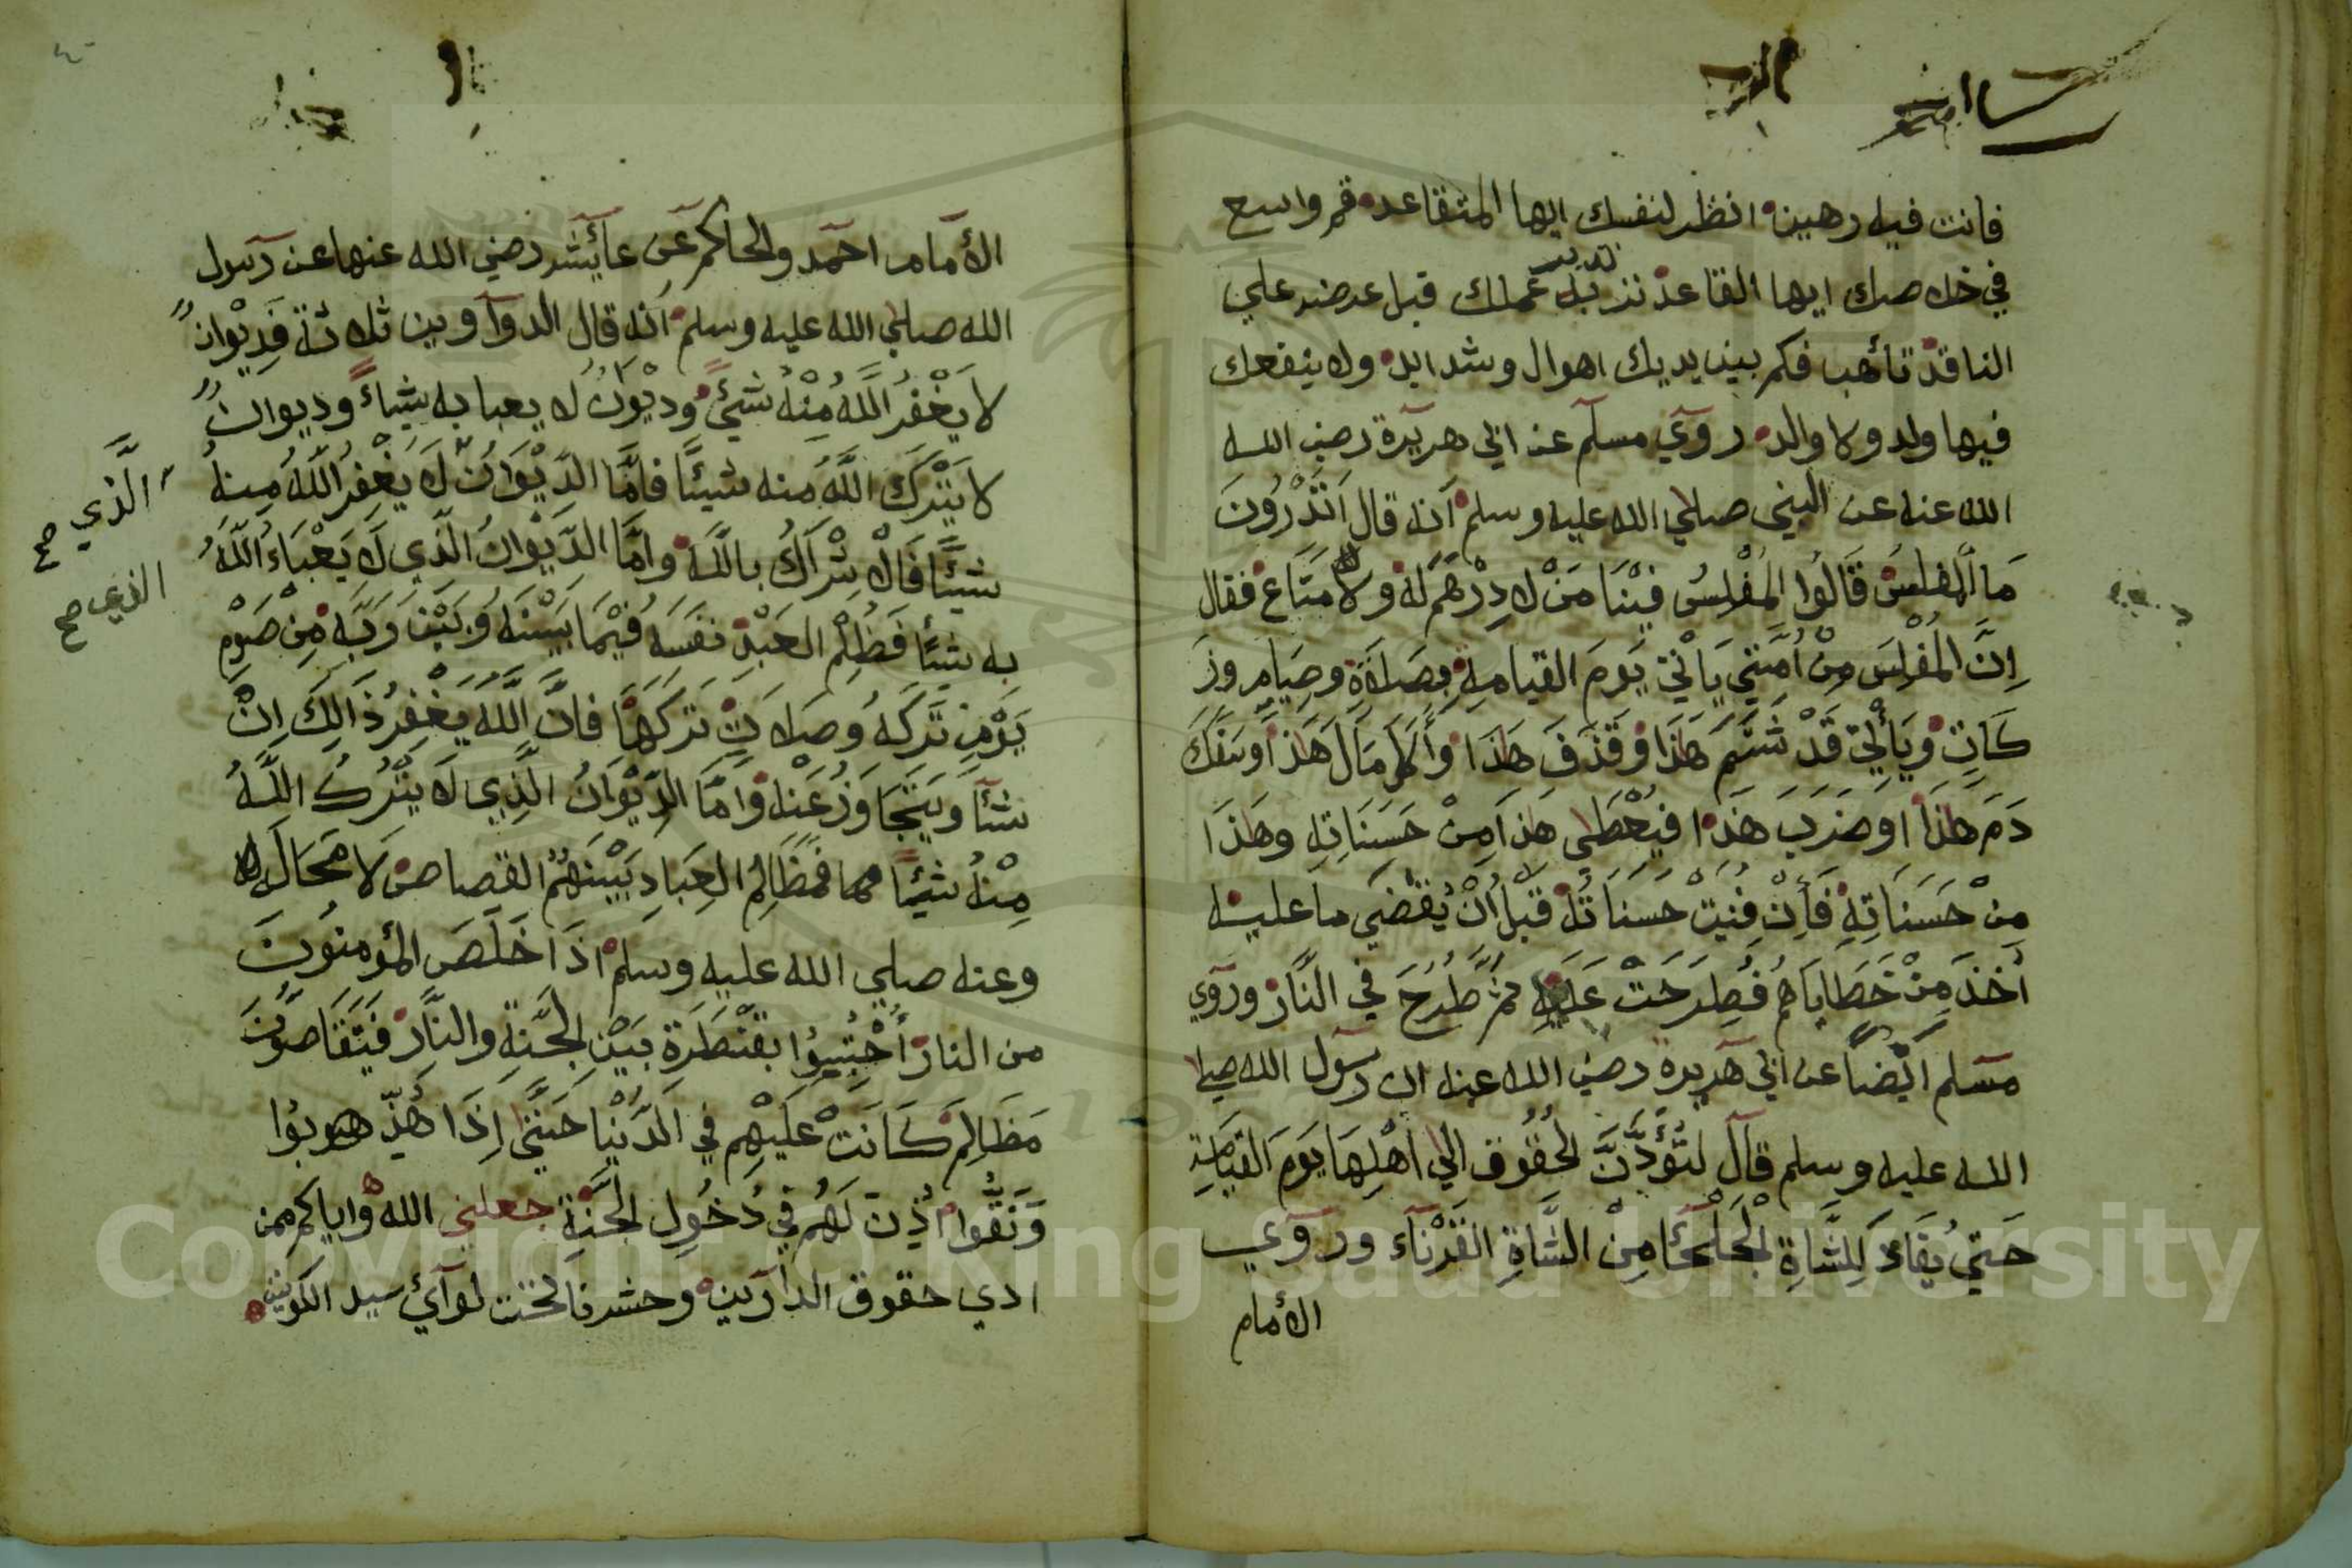 فانت فيه رهين انظر لنفسك ايها المتقاعد قم واسع
في خلاصك ايها القاعد تدبر عملك قبل عرضه علي
الناقد تأهب فكم بين يديك اهوال وشدايد ولا ينفعك
فيها ولد ولا والد روي مسلم عن ابي هريرة رضي الله
الله عنه عن النبي صلي الله عليه وسلم أنه قال أَتَدْرُونَ
مَا المفلِسُ قَالُوا المُفْلِسُ فِيْنَا مَنْ لا دِرْهَمَ لَهُ وَلاَ مَتَاعَ فقال
اِنَّ المُفْلِسَ مِنْ أُمَّتِي يَأْتِي يَومَ القيامةِ بِصَلَاةٍ وصِيَامٍ وزَ
كَاتٍ وَيَأْتِي قَدْ شَتَمَ هَذَا وَقَذَفَ هَذَا وَأَكَلَ مَالَ هَذَا وسَفَكَ
دَمَ هَذَا اوضَرَبَ هَذَا فيُعْطَي هَذَا مِنْ حَسَنَاتِهِ وهَذَا
مِنْ حَسَنَاتِهِ فَأِنْ فَنِيَتْ حَسَنَاتُهُ قَبْلَ أَنْ يُقْضَي ما عليه
أُخِذَ مِنْ خَطَايَاهُم فَطُرِحَتْ عَلَيهِ ثم طُرِحَ في النَّار وروي
مسلم ايْضاً عن ابي هريرة رضي الله عنه ان رسول الله صلي
الله عليه وسلم قال لَتُؤَدُّنَّ الحُقُوق الي اهْلِهَا يَومَ القيَامَةِ
حَتي يُقَادَ لِلشَّاةِ الجَلْحَآءِ مِنْ الشَّاةِ القَرْنَآء وروي
الأمام
الأمام احمد والحاكم عن عائشه رضي الله عنها عن رسول
الله صلي الله عليه وسلم أنه قال الدواوين ثلاثة فَدِيْوانٌ
لا يَغْفِرُ اللَّهُ مِنْهُ شَيْءً وديْوَانٌ لا يعبا به شياءً وديوانٌ
لا يَتْرَكُ اللَّهُ منه شيئًا فامَّا الدِيْوَانُ لاَ يَغْفِرُ اللَّهُ مِنهُ
شيئًا فَالأِشْرَاكُ باللَّه وامَّا الدِّيْوَانُ الَّذِي لاَ يَعْبَاءُ اللَّهُ
به شيئًا فَظُلْمُ العَبْدِ نفْسَهُ فِيْمَا بَيْنَهُ وبَيْنَ رَبِّهِ مِنْ صَوْمِ
يَوْمٍ تَرَكَهُ وصلاتٍ تَرَكَهَا فانَّ اللَّهَ يَغْفِرُ ذَالِكَ اِنْ
شآ وَيَتَجَاوَزُ عَنْهُ وَامَّا الدِيْوَانُ الَّذِي لاَ يَتْرُكُ اللَّهُ
مِنْهُ شيئًا مما فمظَالِمُ العِبَادِ بَيْنَهُمُ القصاص لاَ مَحَالَه
وعنه صلي الله عليه وسلم اذَا خَلَصَ المؤمنُونَ
من النار أُحْتبِسُوا بقَنْطَرَةٍ بَيْنَ الجَنَّةِ والنَّار فَيَتَقَاصُّونَ
مَظَالِمَ كَانَتْ عَلَيْهِم في الدُّنْيَا حَتَّي اِذَا هُذِّبُوا
وَنَقُّوا اُذِنَ لَهُم فِي دُخُولِ الجَنَّةِ جعلني الله واياكم ممن
ادي حقوق الدارين وحشرنا تحت لوآئ سيد الكونين
الَّذي صح
الذي صح
Copyright © King Saud University
1957